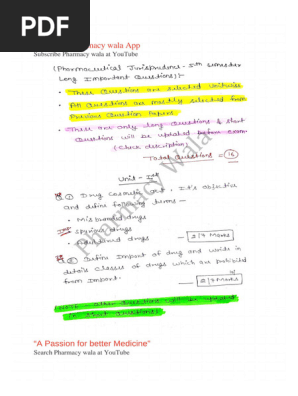 PDF
macy wala App
Subscribe Pharmacy wala at YouTube
(Pharmaceutical Jurisprudence - Vth semester
Long Important Questions):-
These Questions are selected
All Questions are mostly selected from
Previous Question Papers
These are only long Questions & short
Questions will be updated before exam
(Check description)
Total Questions = 16
Unit - Ist
① Drug Cosmetic Act, It's objective
and define following terms -
• Misbranded drugs
• Spurious drugs
drugs
Marks
② Define Import of drug and write in
details classes of drugs which are prohibited
from Import.
Marks
Pharmacy Wala
"A Passion for better Medicine"
Search Pharmacy wala at YouTube